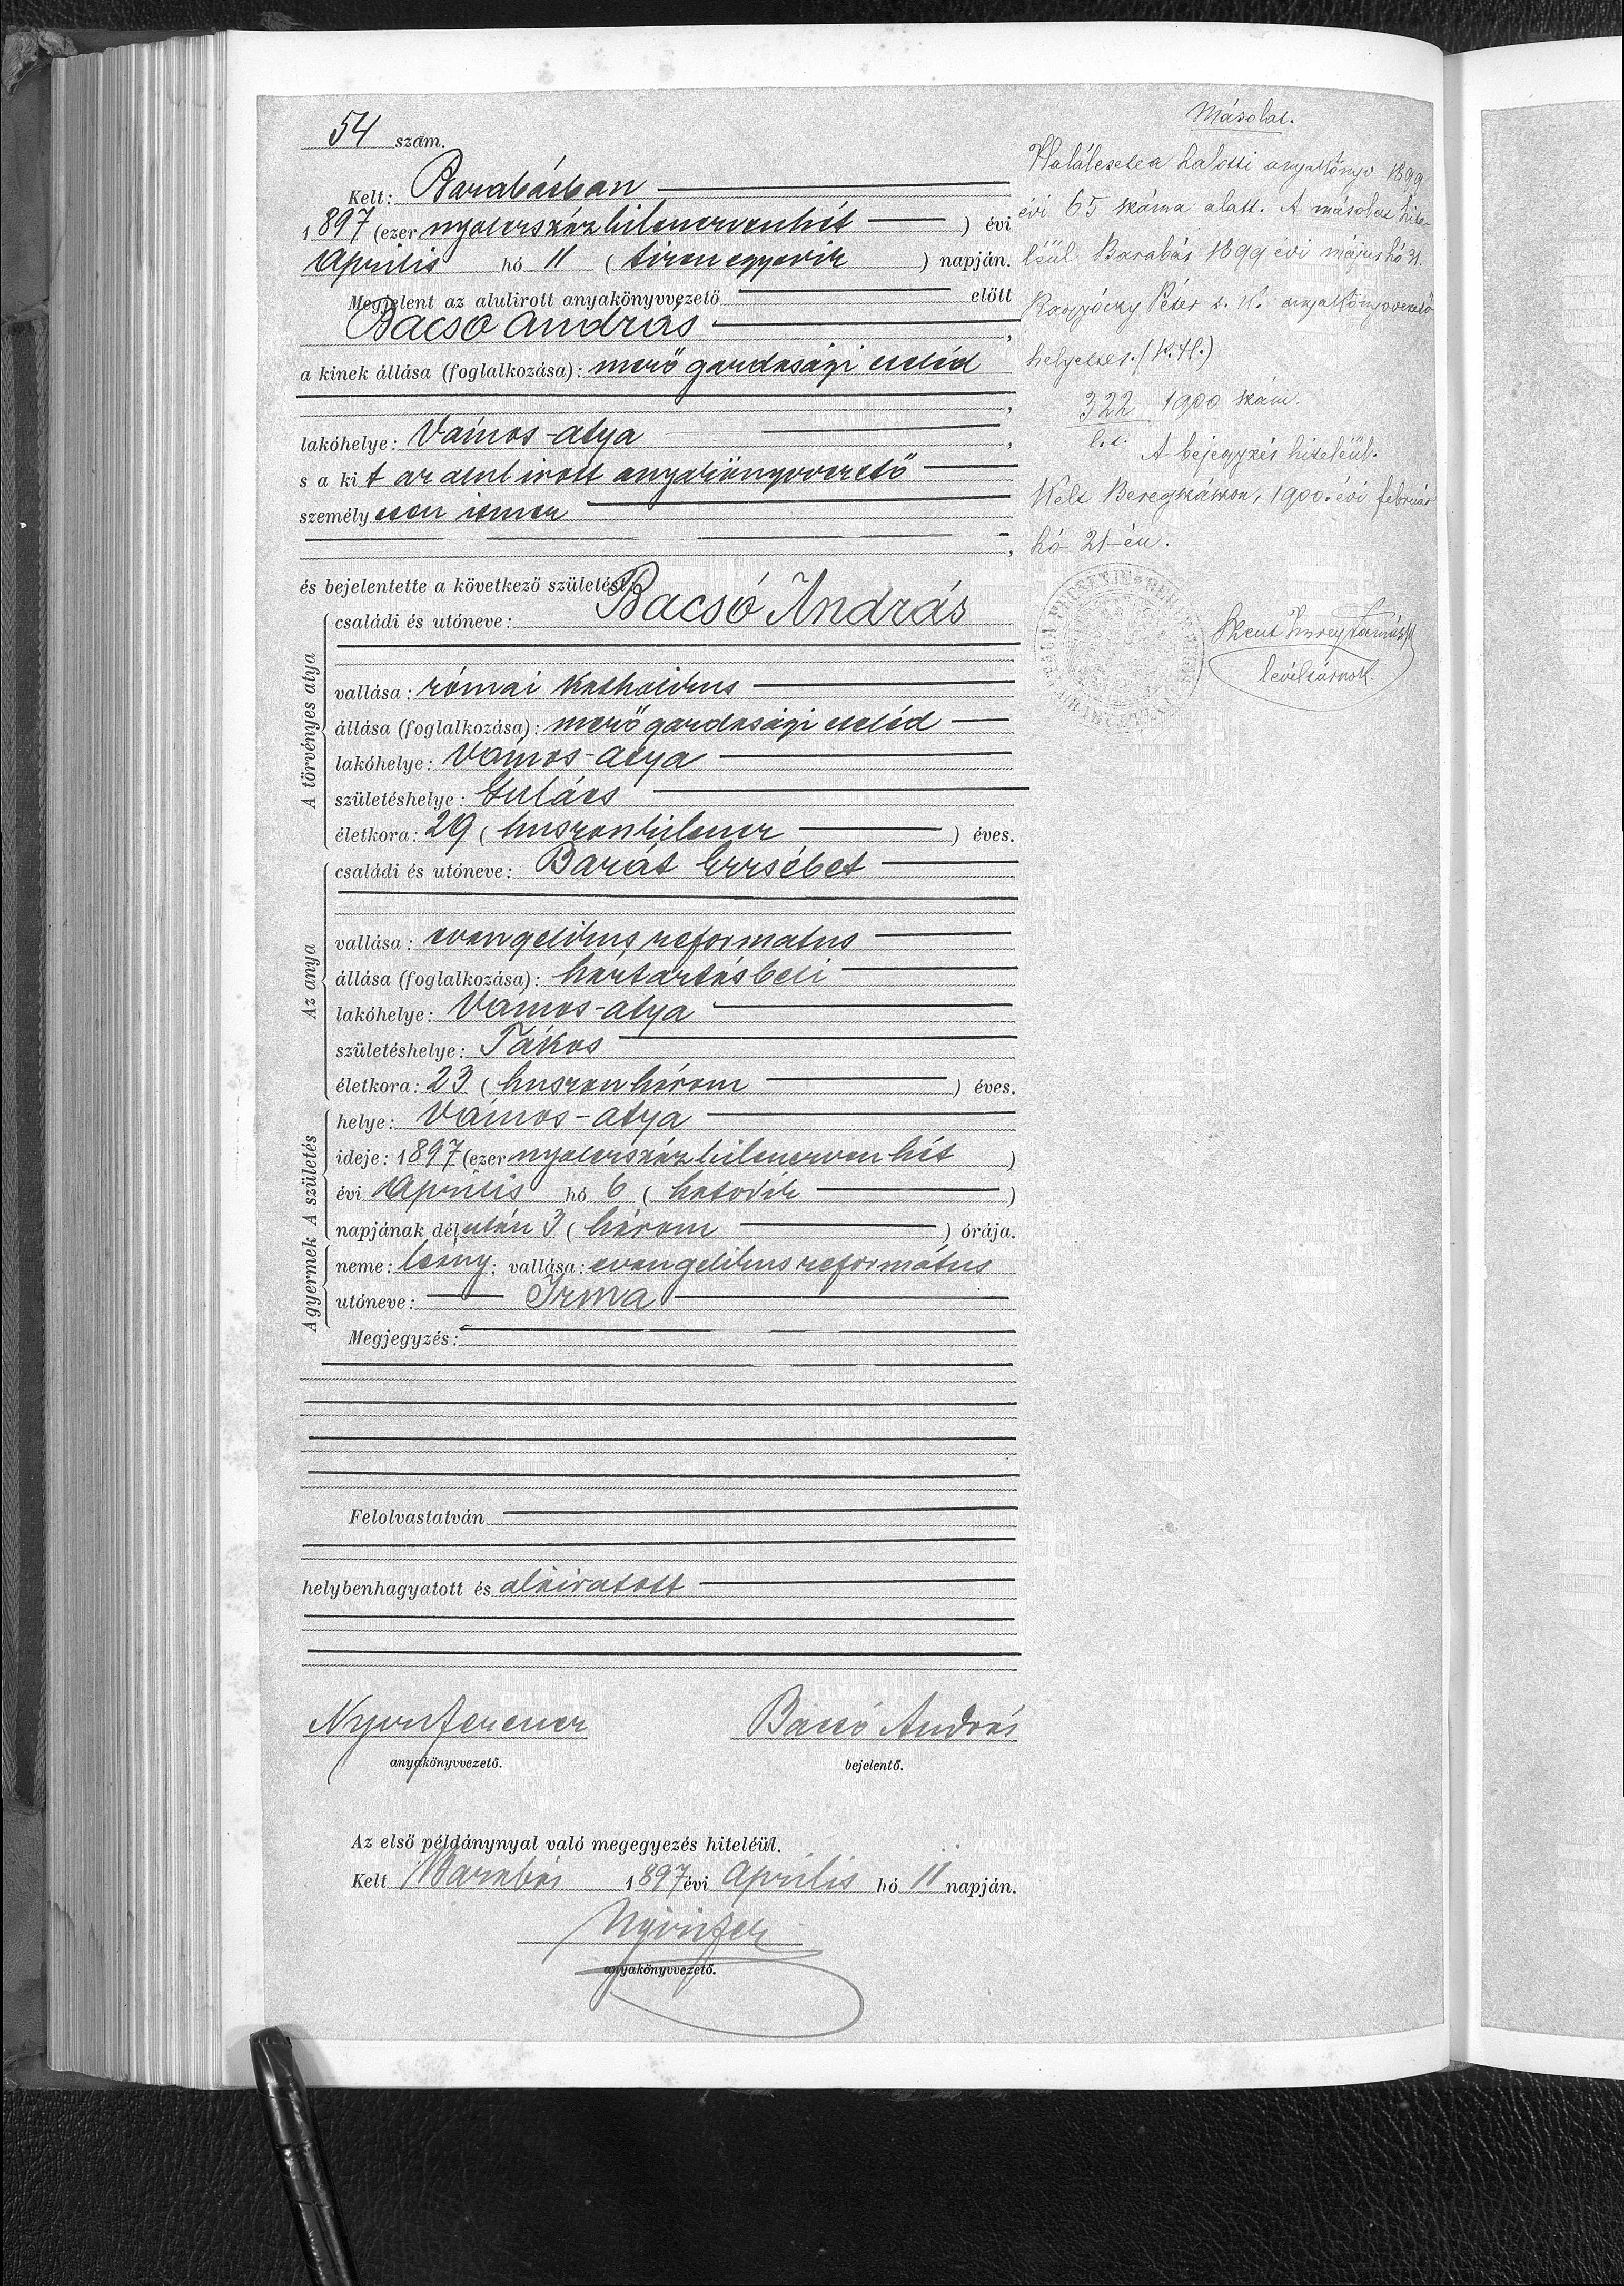 54 szám.
Kelt: Barabásban
1897 (ezer nyolczszázkilenczvenhét) évi
április hó 11 (tizenegyedik) napján.
Megjelent az alulirott anyakönyvvezető előtt
Bacsó András,
a kinek állása (foglalkozása): mező gazdasági cseléd
,
lakóhelye: Vámos-atya,
s a kit az alul irott anyakönyvvezető
személyesen ismer
,
és bejelentette a következő születést:
A törvényes atya
családi és utóneve: Bacsó András
vallása: római katholikus
állása (foglalkozása): mező gazdasági cseléd
lakóhelye: Vámos-atya
születéshelye: Gulács
életkora: 29 (huszonkilencz) éves.
Az anya
családi és utóneve: Barát Erzsébet
vallása: evangelikus reformatus
állása (foglalkozása): háztartásbeli
lakóhelye: Vámos-atya
születéshelye: Tákos
életkora: 23 (huszonhárom) éves.
A születés
helye: Vámos-atya
ideje: 1897 (ezer nyolczszázkilenczvenhét)
évi április hó 6 (hatodik)
napjának délután 3 (három) órája.
A gyermek
neme: leány; vallása: evangelikus református
utóneve: Irma
Megjegyzés:
Felolvastatván
helybenhagyatott és aláiratott
Bacsó András
anyakönyvvezető. bejelentő.
Az első példánynyal való megegyezés hiteléül.
Kelt Barabás 1897 évi április hó 11 napján.
anyakönyvvezető.
Másolat.
Halálesete a halotti anyakönyv 1899
évi 65 száma alatt. A másolat hite-
léül Barabás 1899 évi május hó 31.
Péter s. k. anyakönyvvezető
helyettes. (P. H.)
322 1900 szám.
A bejegyzés hiteléül.
Kelt Beregszászon, 1900. évi február
hó 21-én.
levéltárnok.